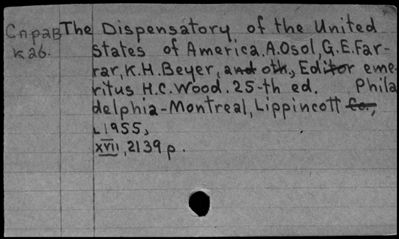 Справ The Dispensatory of the United
каб. States of America. A.Osol, G.E.Far-
rar, K.H.Beyer, and oth., Editor eme-
ritus H.C.Wood. 25-th ed. Phila
delphia-Montreal, Lippincott Co.,
[1955]
XVII, 2139 p.